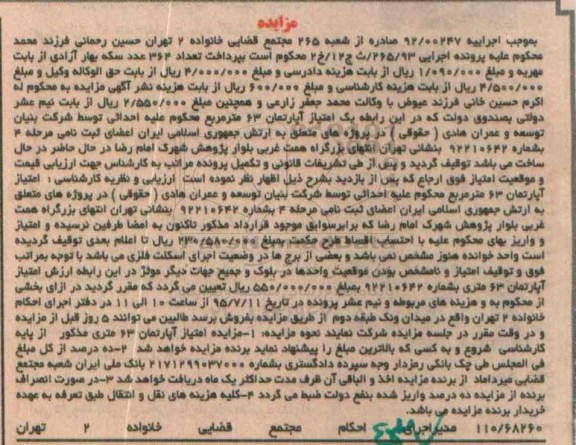 مزایده
بموجب اجراییه ۹۲/۰۰۲۴۷ صادره از شعبه ۲۶۵ مجتمع قضایی خانواده ۲ تهران حسین رحمانی فرزند محمد
محکوم علیه پرونده اجرایی ۲۶۵/۹۳/ث ج۲/خ۱۲ محکوم است بپرداخت تعداد ۳۶۴ عدد سکه بهار آزادی از بابت
مهریه و مبلغ ۱/۰۹۰/۰۰۰ ریال از بابت هزینه دادرسی و مبلغ ۴/۰۰۰/۰۰۰ ریال از بابت حق الوکاله وکیل و مبلغ
۴/۵۰۰/۰۰۰ ریال از بابت هزینه کارشناسی و مبلغ ۶۰۰/۰۰۰ ریال از بابت هزینه نشر آگهی مزایده به محکوم له
اکرم حسین خانی فرزند عیوض با وکالت محمد جعفر زارعی و همچنین مبلغ ۲/۵۵۰/۰۰۰ ریال از بابت نیم عشر
دولتی بصندوق دولت که در این رابطه یک امتیاز آپارتمان ۶۳ مترمربع محکوم علیه احداثی توسط شرکت بنیان
توسعه و عمران هادی ( حقوقی ) در پروژه های متعلق به ارتش جمهوری اسلامی ایران اعضای ثبت نامی مرحله ۴
بشماره ۹۲۲۱۰۶۴۲ بنشانی تهران انتهای بزرگراه همت غربی بلوار پژوهش شهرک امام رضا در حال حاضر در حال
ساخت می باشد توقیف گردید و پس از طی تشریفات قانونی و تکمیل پرونده مراتب به کارشناس جهت ارزیابی قیمت
و موقعیت امتیاز فوق ارجاع که پس از بازدید بشرح ذیل اظهار نظر نموده است ارزیابی و نظریه کارشناسی : امتیاز
آپارتمان ۶۳ مترمربع محکوم علیه احداثی توسط شرکت بنیان توسعه و عمران هادی ( حقوقی ) در پروژه های متعلق
به ارتش جمهوری اسلامی ایران اعضای ثبت نامی مرحله ۴ بشماره ۹۲۲۱۰۶۴۲ بنشانی تهران انتهای بزرگراه همت
غربی بلوار پژوهش شهرک امام رضا که برابرسوابق موجود قرارداد مذکور تاکنون به امضا طرفین نرسیده و امتیاز
و واریز بهای محکوم علیه با احتساب اقساط طرح حکمت بمبلغ ۲۳۰/۵۸۰/۰۰۰ ریال تا اعلام بعدی توقیف گردیده
است واحد خوانده هنوز مشخص نمی باشد و بعضی از برج ها در وضعیت اجرای اسکلت فلزی می باشد با توجه بمراتب
فوق و توقیف امتیاز و نامشخص بودن موقعیت واحدها در بلوک و جمیع جهات دیگر موثر در این رابطه ارزش امتیاز
آپارتمان ۶۳ متری بشماره ۹۲۲۱۰۶۴۲ بمبلغ ۵۵۰/۰۰۰/۰۰۰ ریال تعیین می گردد که مقرر گردید در ازای بخشی
از محکوم به و هزینه های مربوطه و نیم عشر پرونده در تاریخ ۹۵/۷/۱۱ از ساعت ۱۰ الی ۱۱ در دفتر اجرای احکام
خانواده ۲ تهران واقع در میدان ونک طبقه دوم از طریق مزایده بفروش برسد طالبین می توانند ۵ روز قبل از مزایده
و در وقت مقرر در جلسه مزایده شرکت نمایند نحوه مزایده: ۱-مزایده امتیاز آپارتمان ۶۳ متری مذکور از پایه
کارشناسی شروع و به کسی که بالاترین مبلغ را پیشنهاد نماید برنده مزایده خواهد شد ۲-ده درصد از کل مبلغ
فی المجلس طی چک بانکی رمزدار وجه سپرده دادگستری بشماره ۲۱۷۱۲۹۹۰۳۷۰۰۰ بانک ملی ایران شعبه مجتمع
قضایی میرداماد از برنده مزایده اخذ و الباقی آن ظرف مدت حداکثر یک ماه دریافت خواهد شد ۳-در صورت انصراف
برنده از مزایده ده درصد واریز شده بنفع دولت ضبط می گردد ۴-کلیه هزینه های نقل و انتقال طبق تعرفه به عهده
خریدار برنده مزایده می باشد.
۱۱۰/۶۸۲۶۰ مدیراجرای احکام مجتمع قضایی خانواده ۲ تهران